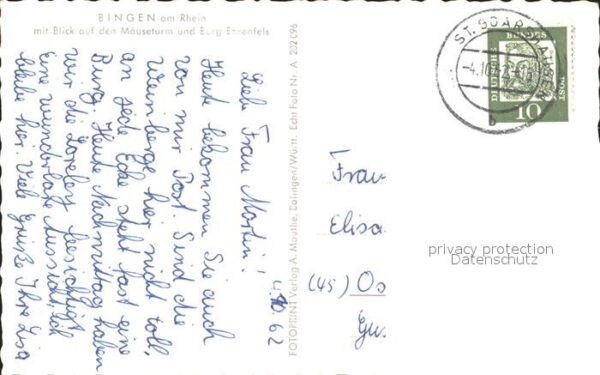 BINGEN am Rhein
mit Blick auf den Mäuseturm und Burg Ehrenfels
4.10.62
Liebe Frau Martin!
Heute bekommen Sie auch
von mir Post. Sind die
Weinberge hier nicht toll,
an jede Ecke steht fast eine
Burg. Heute Nachmittag haben
wir die Loreley besichtigt
Eine wunderbare Aussicht, ich
bleibe hier. Viele Grüße Ihre Lisa
FOTOPRINT Verlag A. Mauthe, Dotingen/Württ. Echt Foto Nr. A
ST. GOARSHAUSEN
b
DEUTSCHE
BUNDES
POST
10
Frau
Elisa
(45) Os
Gu
privacy protection
Datenschutz